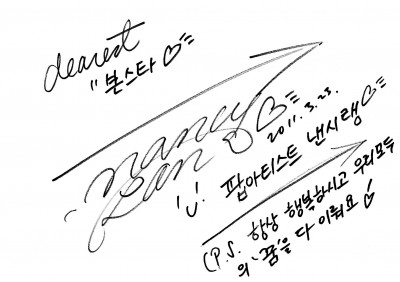 dearest
"본스타♡"
nancy
Lang ♡
2011. 3. 23.
팝아티스트 낸시랭♡
(P.S. 항상 행복하시고 우리모두
의 '꿈'을 다 이뤄요